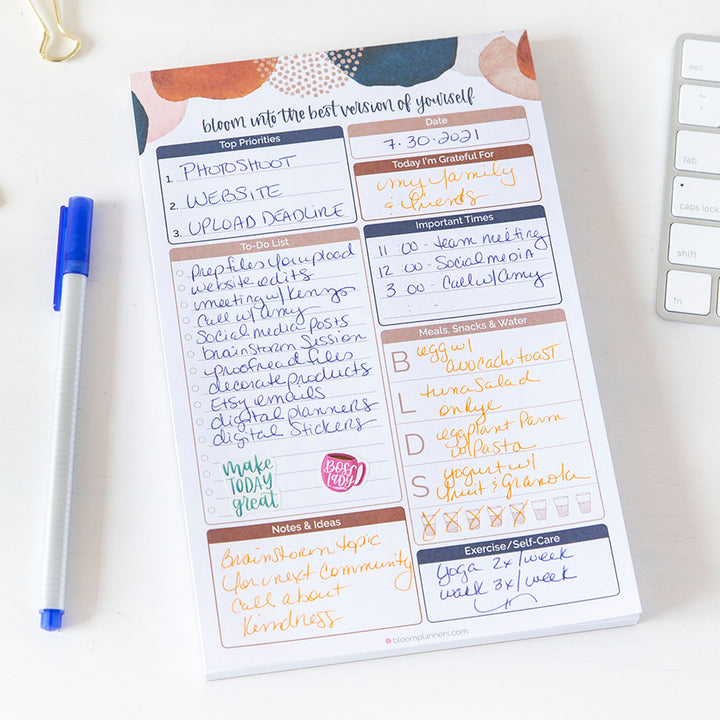 bloom into the best version of yourself
Top Priorities
1. PHOTOSHOOT
2. WEBSITE
3. UPLOAD DEADLINE
Date
7.30.2021
Today I'm Grateful For
my family
& friends
To-Do List
Prep files for upload
website edits
meeting w/ Kenzy
Call w/ Amy
Social media posts
brainstorm session
proofread files
decorate products
Etsy emails
digital planners
digital stickers
make
TODAY
great
BOSS
LADY
Important Times
11:00 - team meeting
12:00 - Social media
3:00 - Call w/ Amy
Meals, Snacks & Water
B egg w/
avocado toast
L tuna salad
on Rye
D eggplant Parm
w/ Pasta
S yogurt w/
fruit & Granola
Notes & Ideas
Brainstorm topic
for next community
call about
Kindness
Exercise/Self-Care
Yoga 2x/week
walk 3x/week
bloomplanners.com
esc
~
tab
caps lock
shift
fn